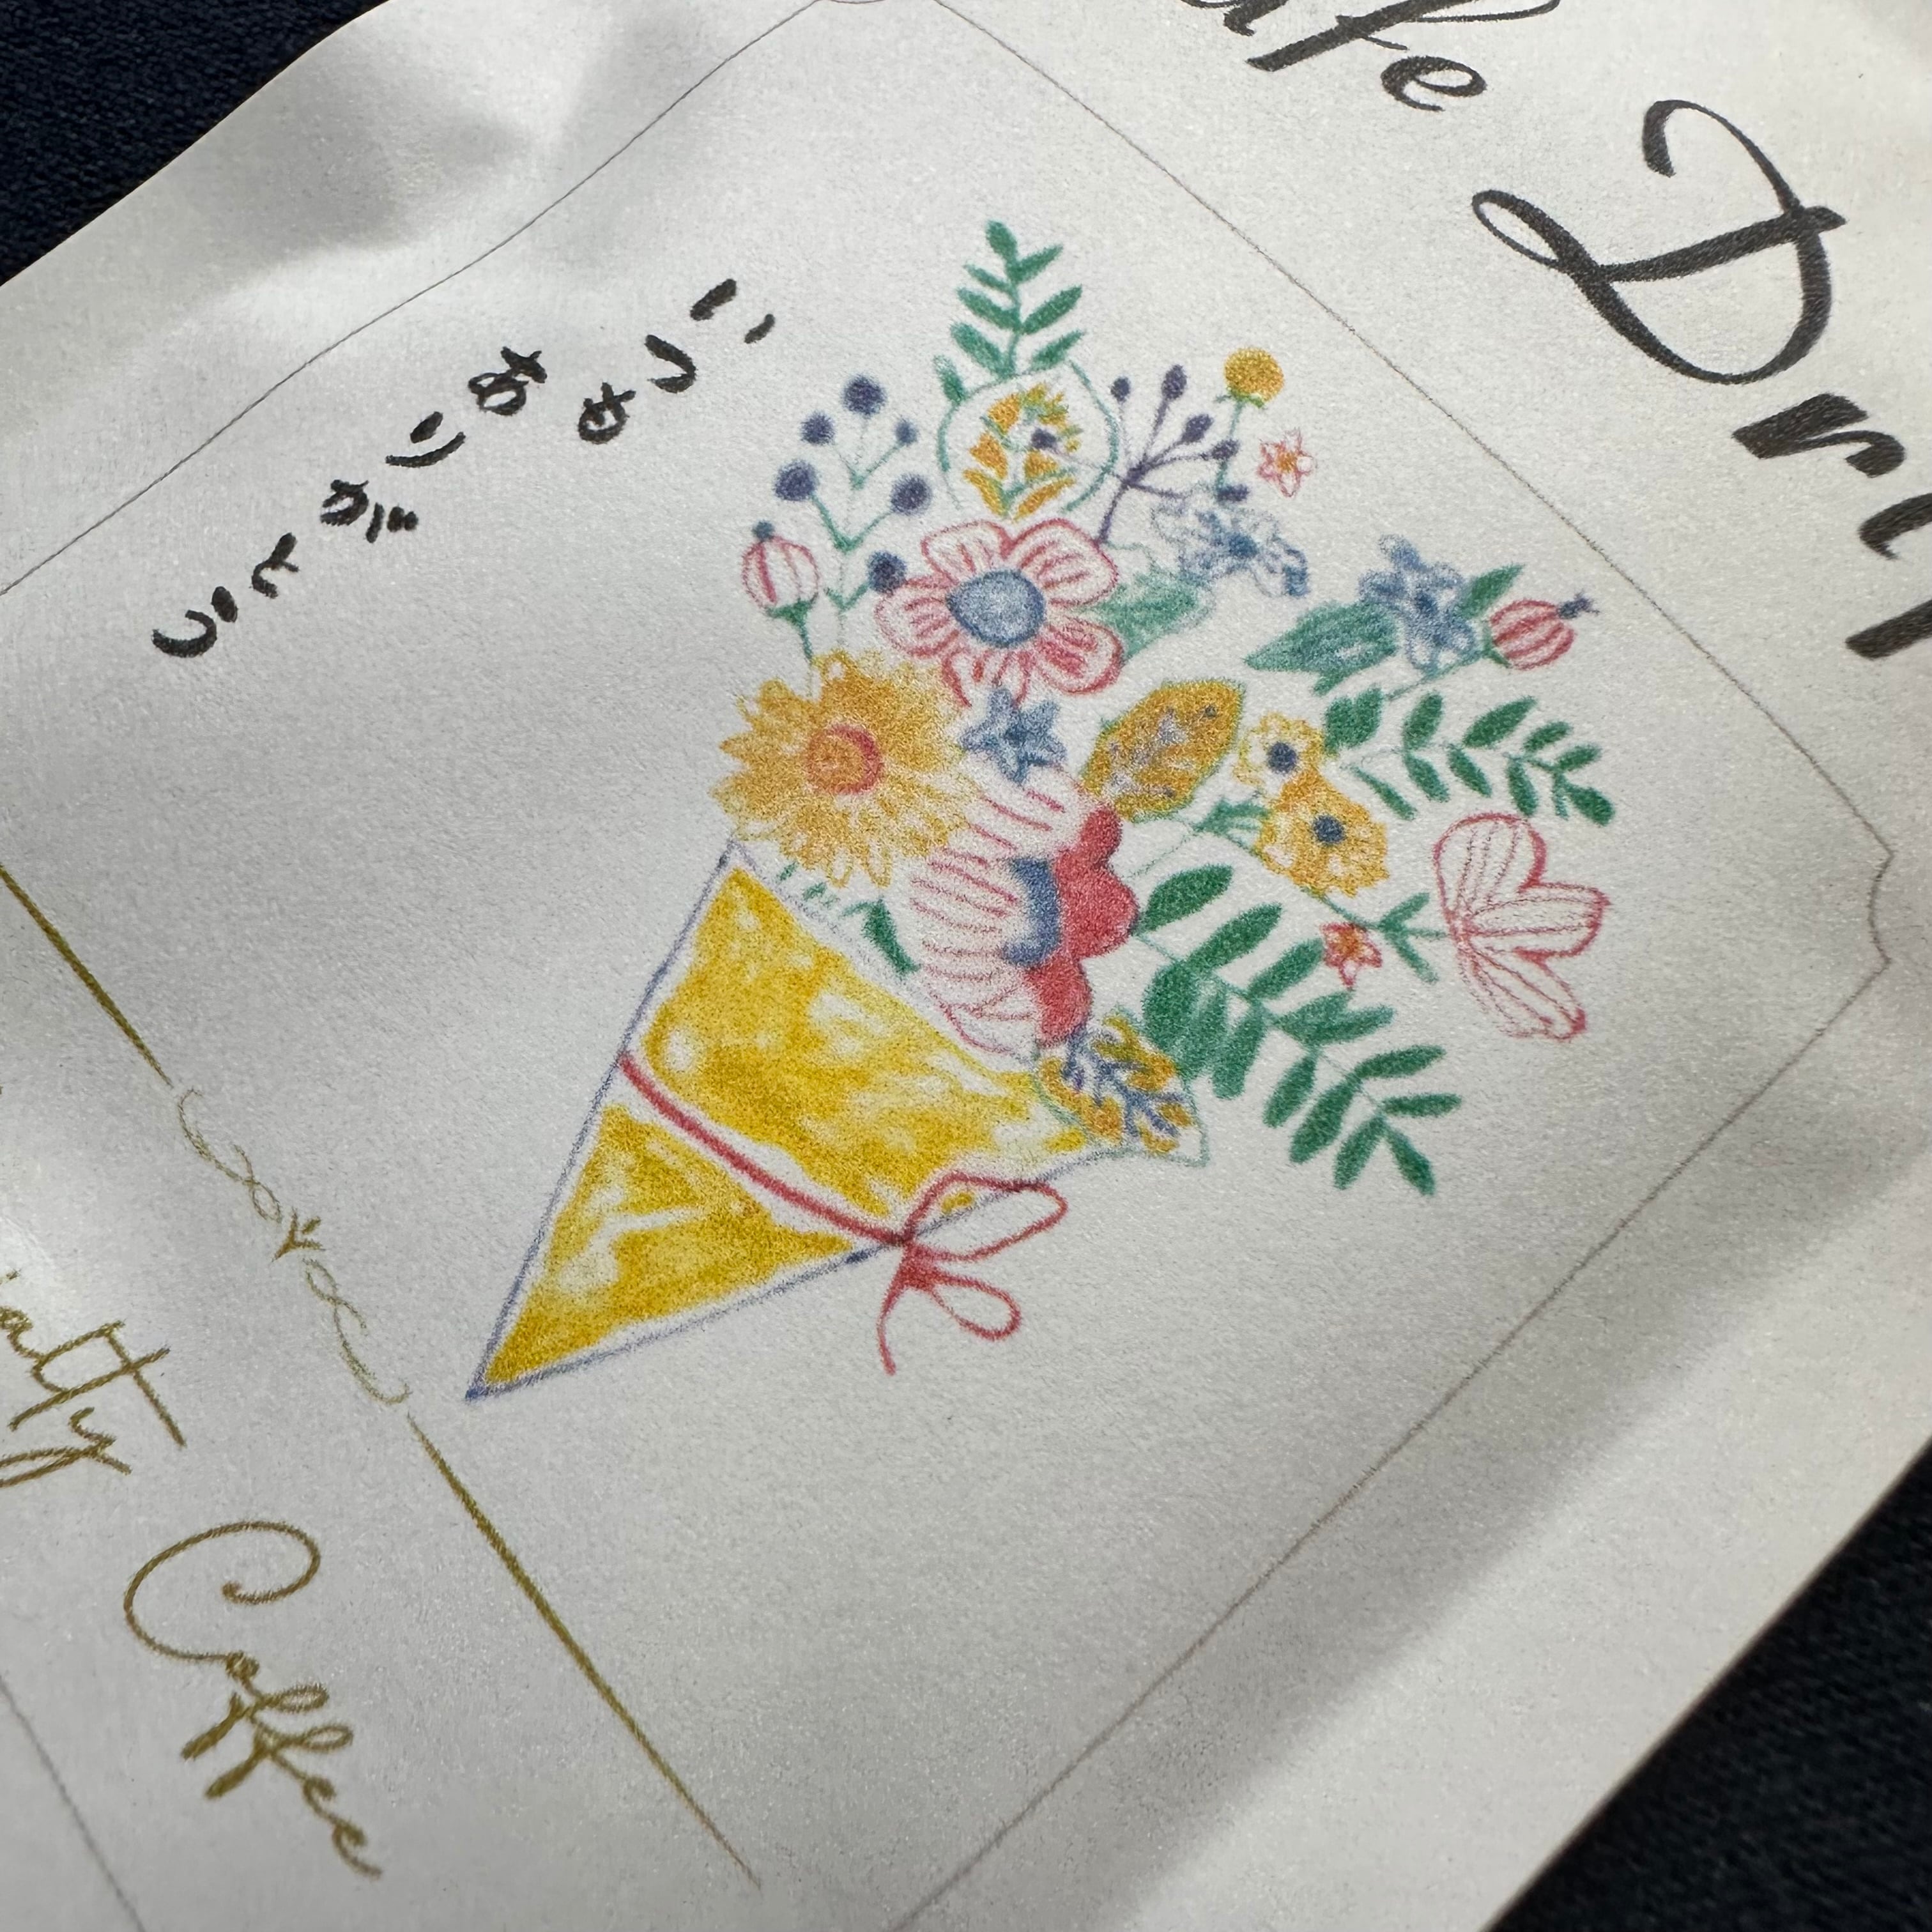 afe Dri
いつも
ありがとう
ialty Coffee